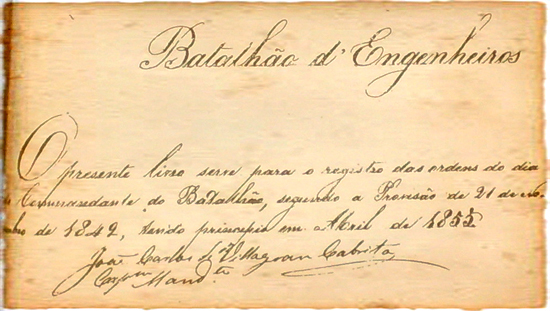 Batalhão d'Engenheiros
O presente livro serve para o registro das ordens do dia
do Commandante do Batalhão, segundo a Provisão de 21 de
de 1842, tendo principio em Abril de 1855
João Carlos de Villagran Cabrita
Cap.m Mand.te